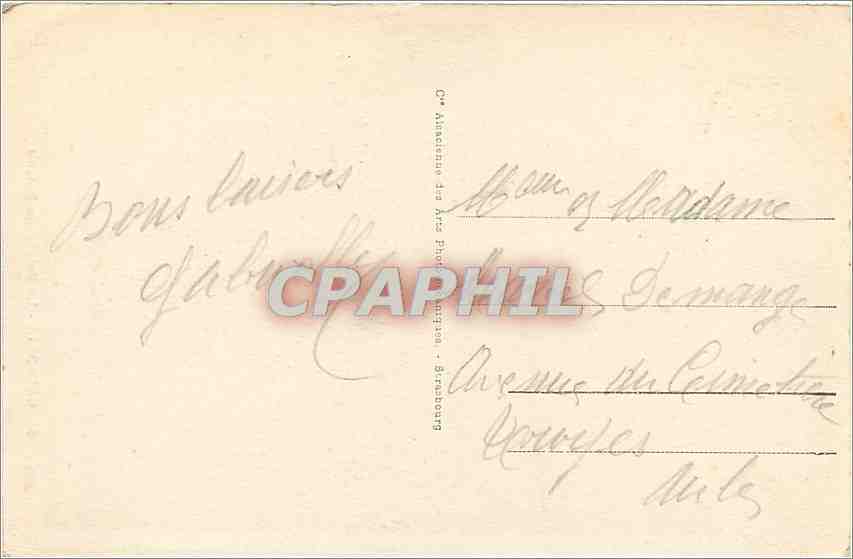 Bons baisers
Gabrielle
Cie Alsacienne des Arts Photomécaniques. - Strasbourg
CPAPHIL
et Madame
Demange
Avenue du Cimetière
Troyes
Aube